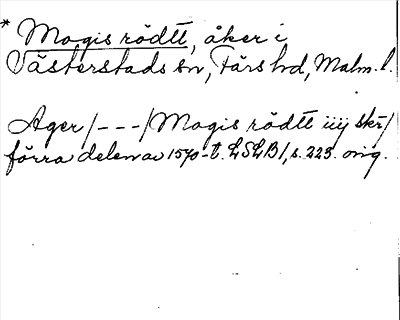 * Mogis rödtt, åker i
Västerstads sn, Färs hd, Malm. l.
Ager /---/ Mogis rödtt iiij skr /
förra delen av 1570-t. LSLB 1, s. 223. orig.